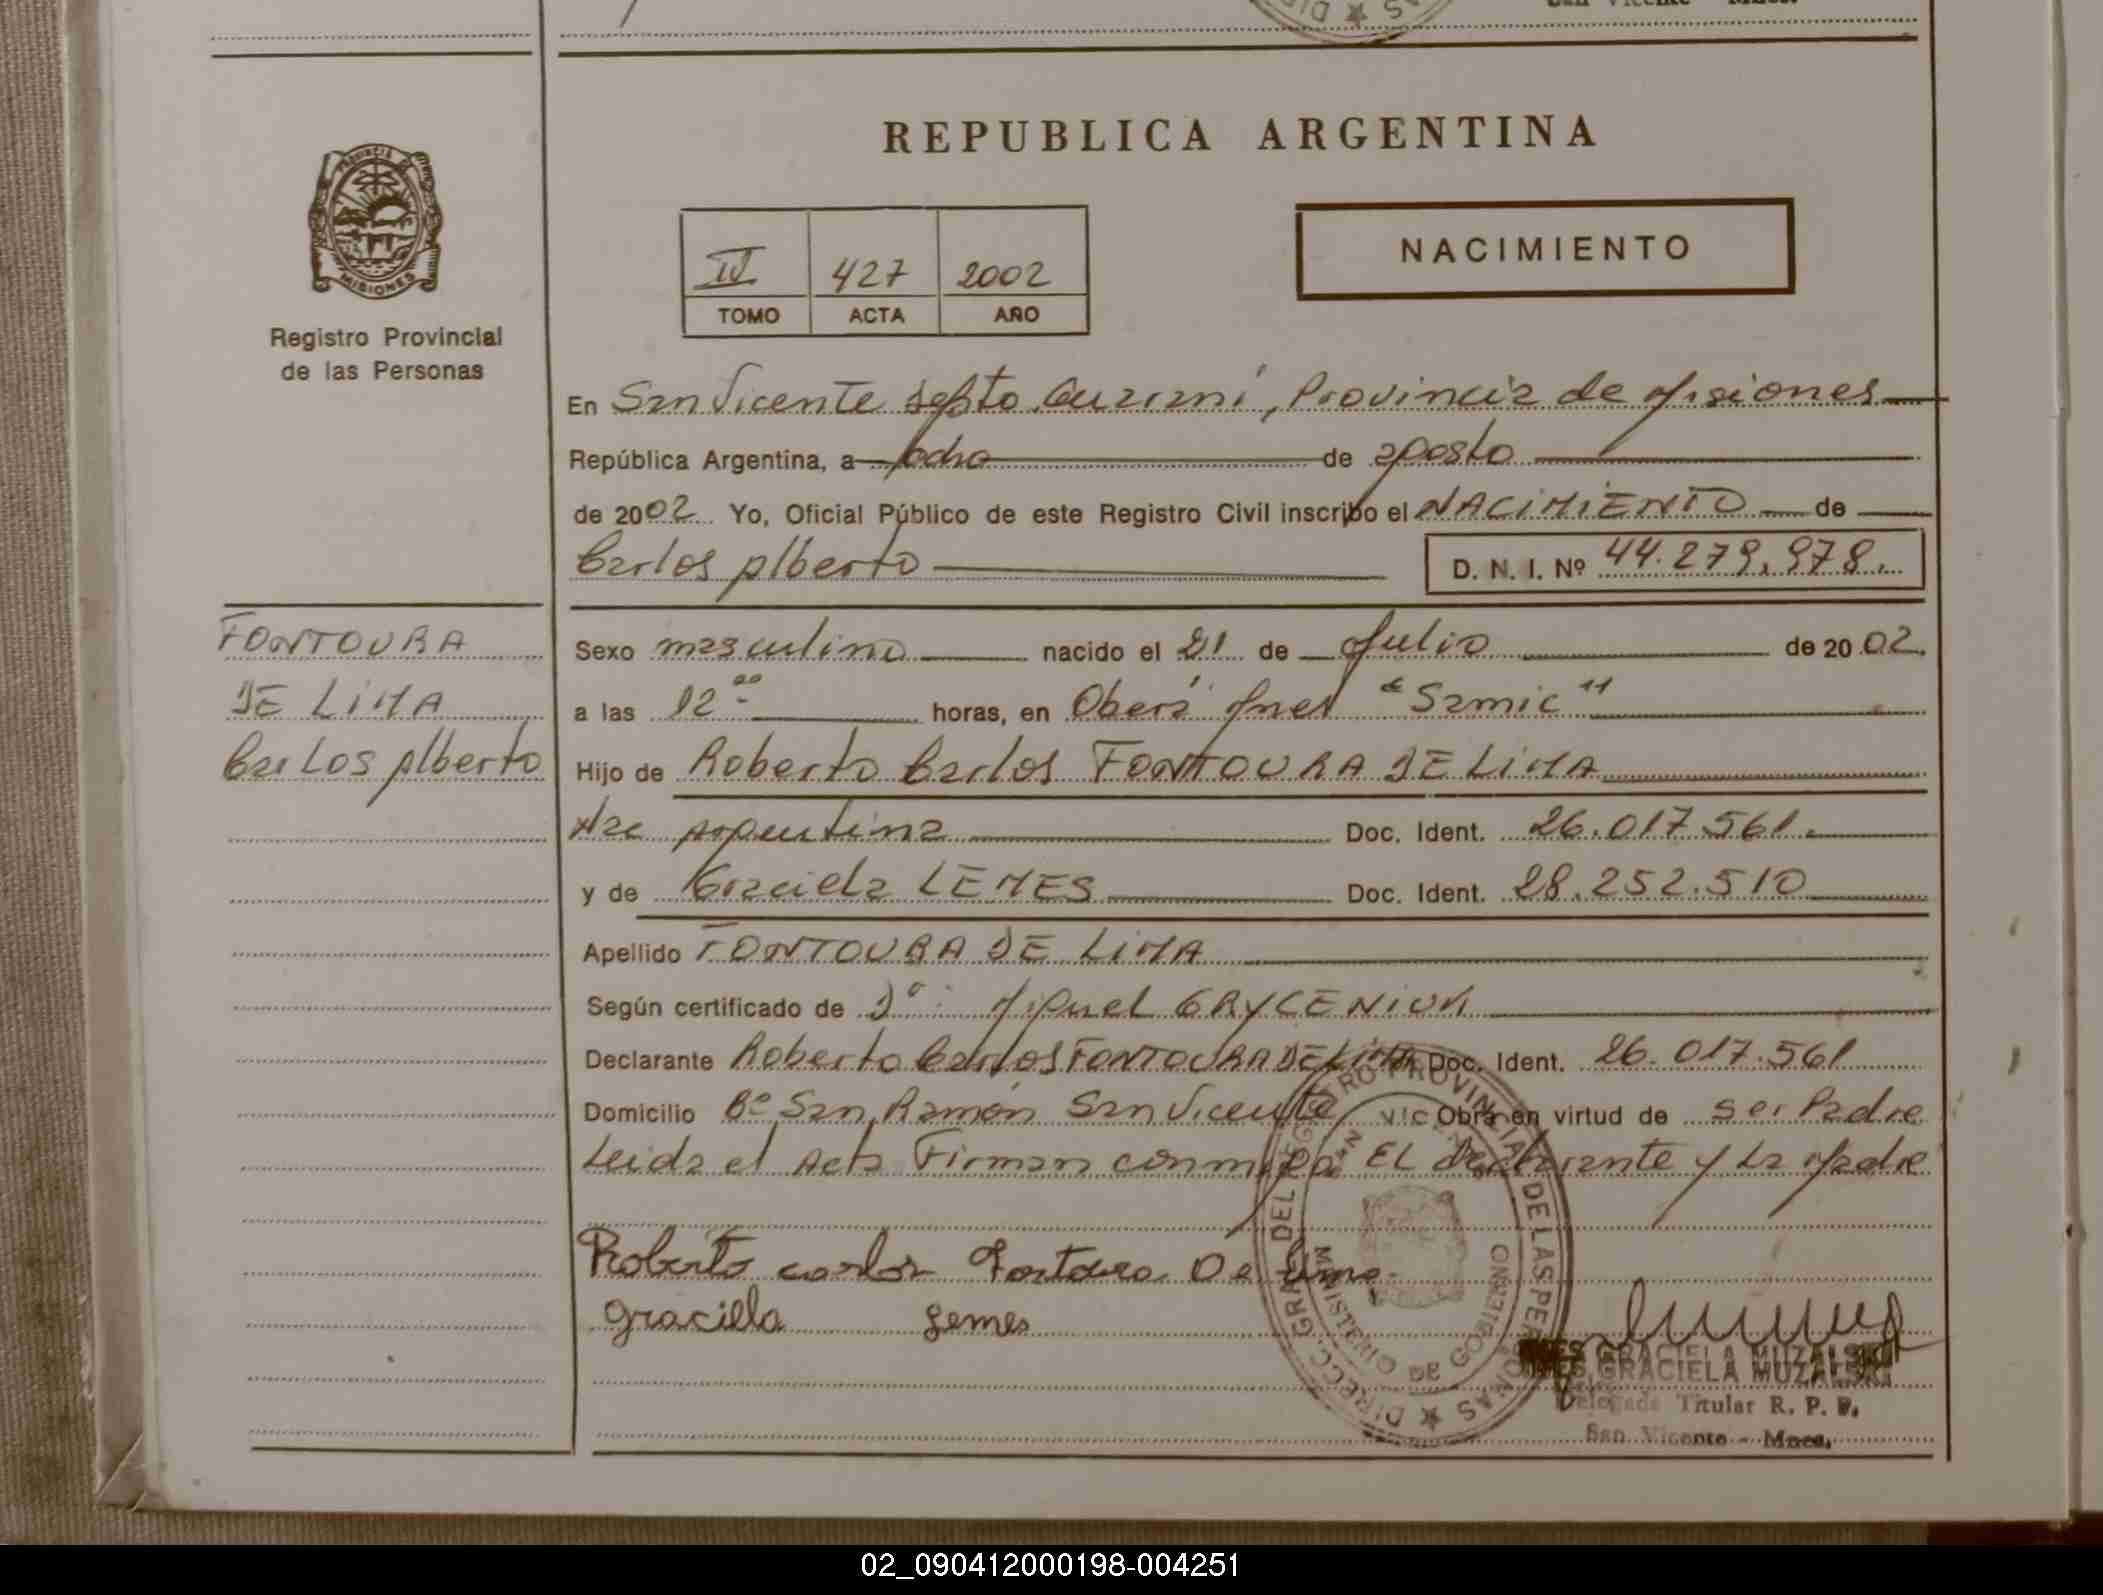 San Vicente - Mnes.
REPUBLICA ARGENTINA
PROVINCIA DE
MISIONES
Registro Provincial
de las Personas
IV 427 2002
TOMO ACTA AÑO
NACIMIENTO
En San Vicente depto. Guaraní, Provincia de Misiones
República Argentina, a ocho de agosto
de 2002 Yo, Oficial Público de este Registro Civil inscribo el NACIMIENTO de
Carlos Alberto D. N. I. Nº 44.279.978.
FONTOURA
DE LIMA
Carlos Alberto
Sexo masculino nacido el 21 de Julio de 2002.
a las 12 ºº horas, en Oberá Mnes "Samic"
Hijo de Roberto Carlos FONTOURA DE LIMA
Nac Argentina Doc. Ident. 26.017.561.
y de Graciela LEMES Doc. Ident. 28.252.510
Apellido FONTOURA DE LIMA
Según certificado de Dº: Miguel GRYCENIUK
Declarante Roberto Carlos FONTOURA DE LIMA Doc. Ident. 26.017.561
Domicilio Bº San Ramón San Vicente Obra en virtud de ser Padre
Leida el Acta Firman conmigo EL declarante y La Madre
Roberto carlos Fontoura De Lima
Graciela Lemes
DIRECC. GRAL. DEL REGISTRO PROVINCIAL DE LAS PERSONAS
MINISTERIO DE GOBIERNO
SAN VIC
INES GRACIELA MUZALSKI
Delegada Titular R. P. P.
San Vicente - Mnes.
02_090412000198-004251